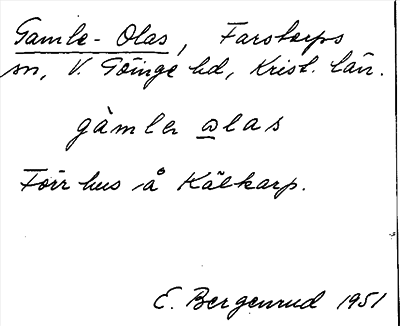 Gamle-Olas, Farstorps
sn, V. Göinge hd, Krist. län.
gàmler olas
Förr hus å Kälkarp.
E. Bergenrud 1951